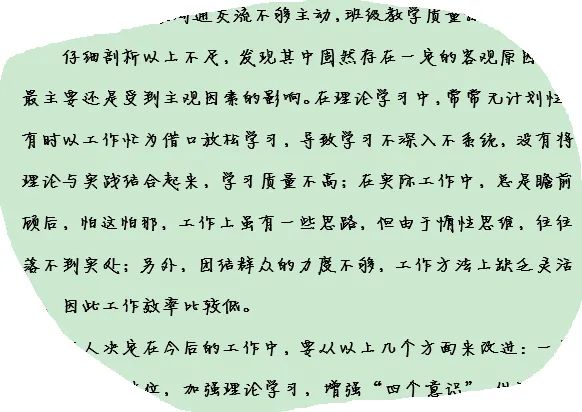 沟通交流不够主动,班级教学质量
仔细剖析以上不足，发现其中固然存在一定的客观原因
最主要还是受到主观因素的影响。在理论学习中，常常无计划性
有时以工作忙为借口放松学习，导致学习不深入不系统，没有将
理论与实践结合起来，学习质量不高；在实际工作中，总是瞻前
顾后，怕这怕那，工作上虽有一些思路，但由于惰性思维，往往
落不到实处；另外，团结群众的力度不够，工作方法上缺乏灵活
因此工作效率比较低。
人决定在今后的工作中，要从以上几个方面来改进：一
位，加强理论学习，增强“四个意识”